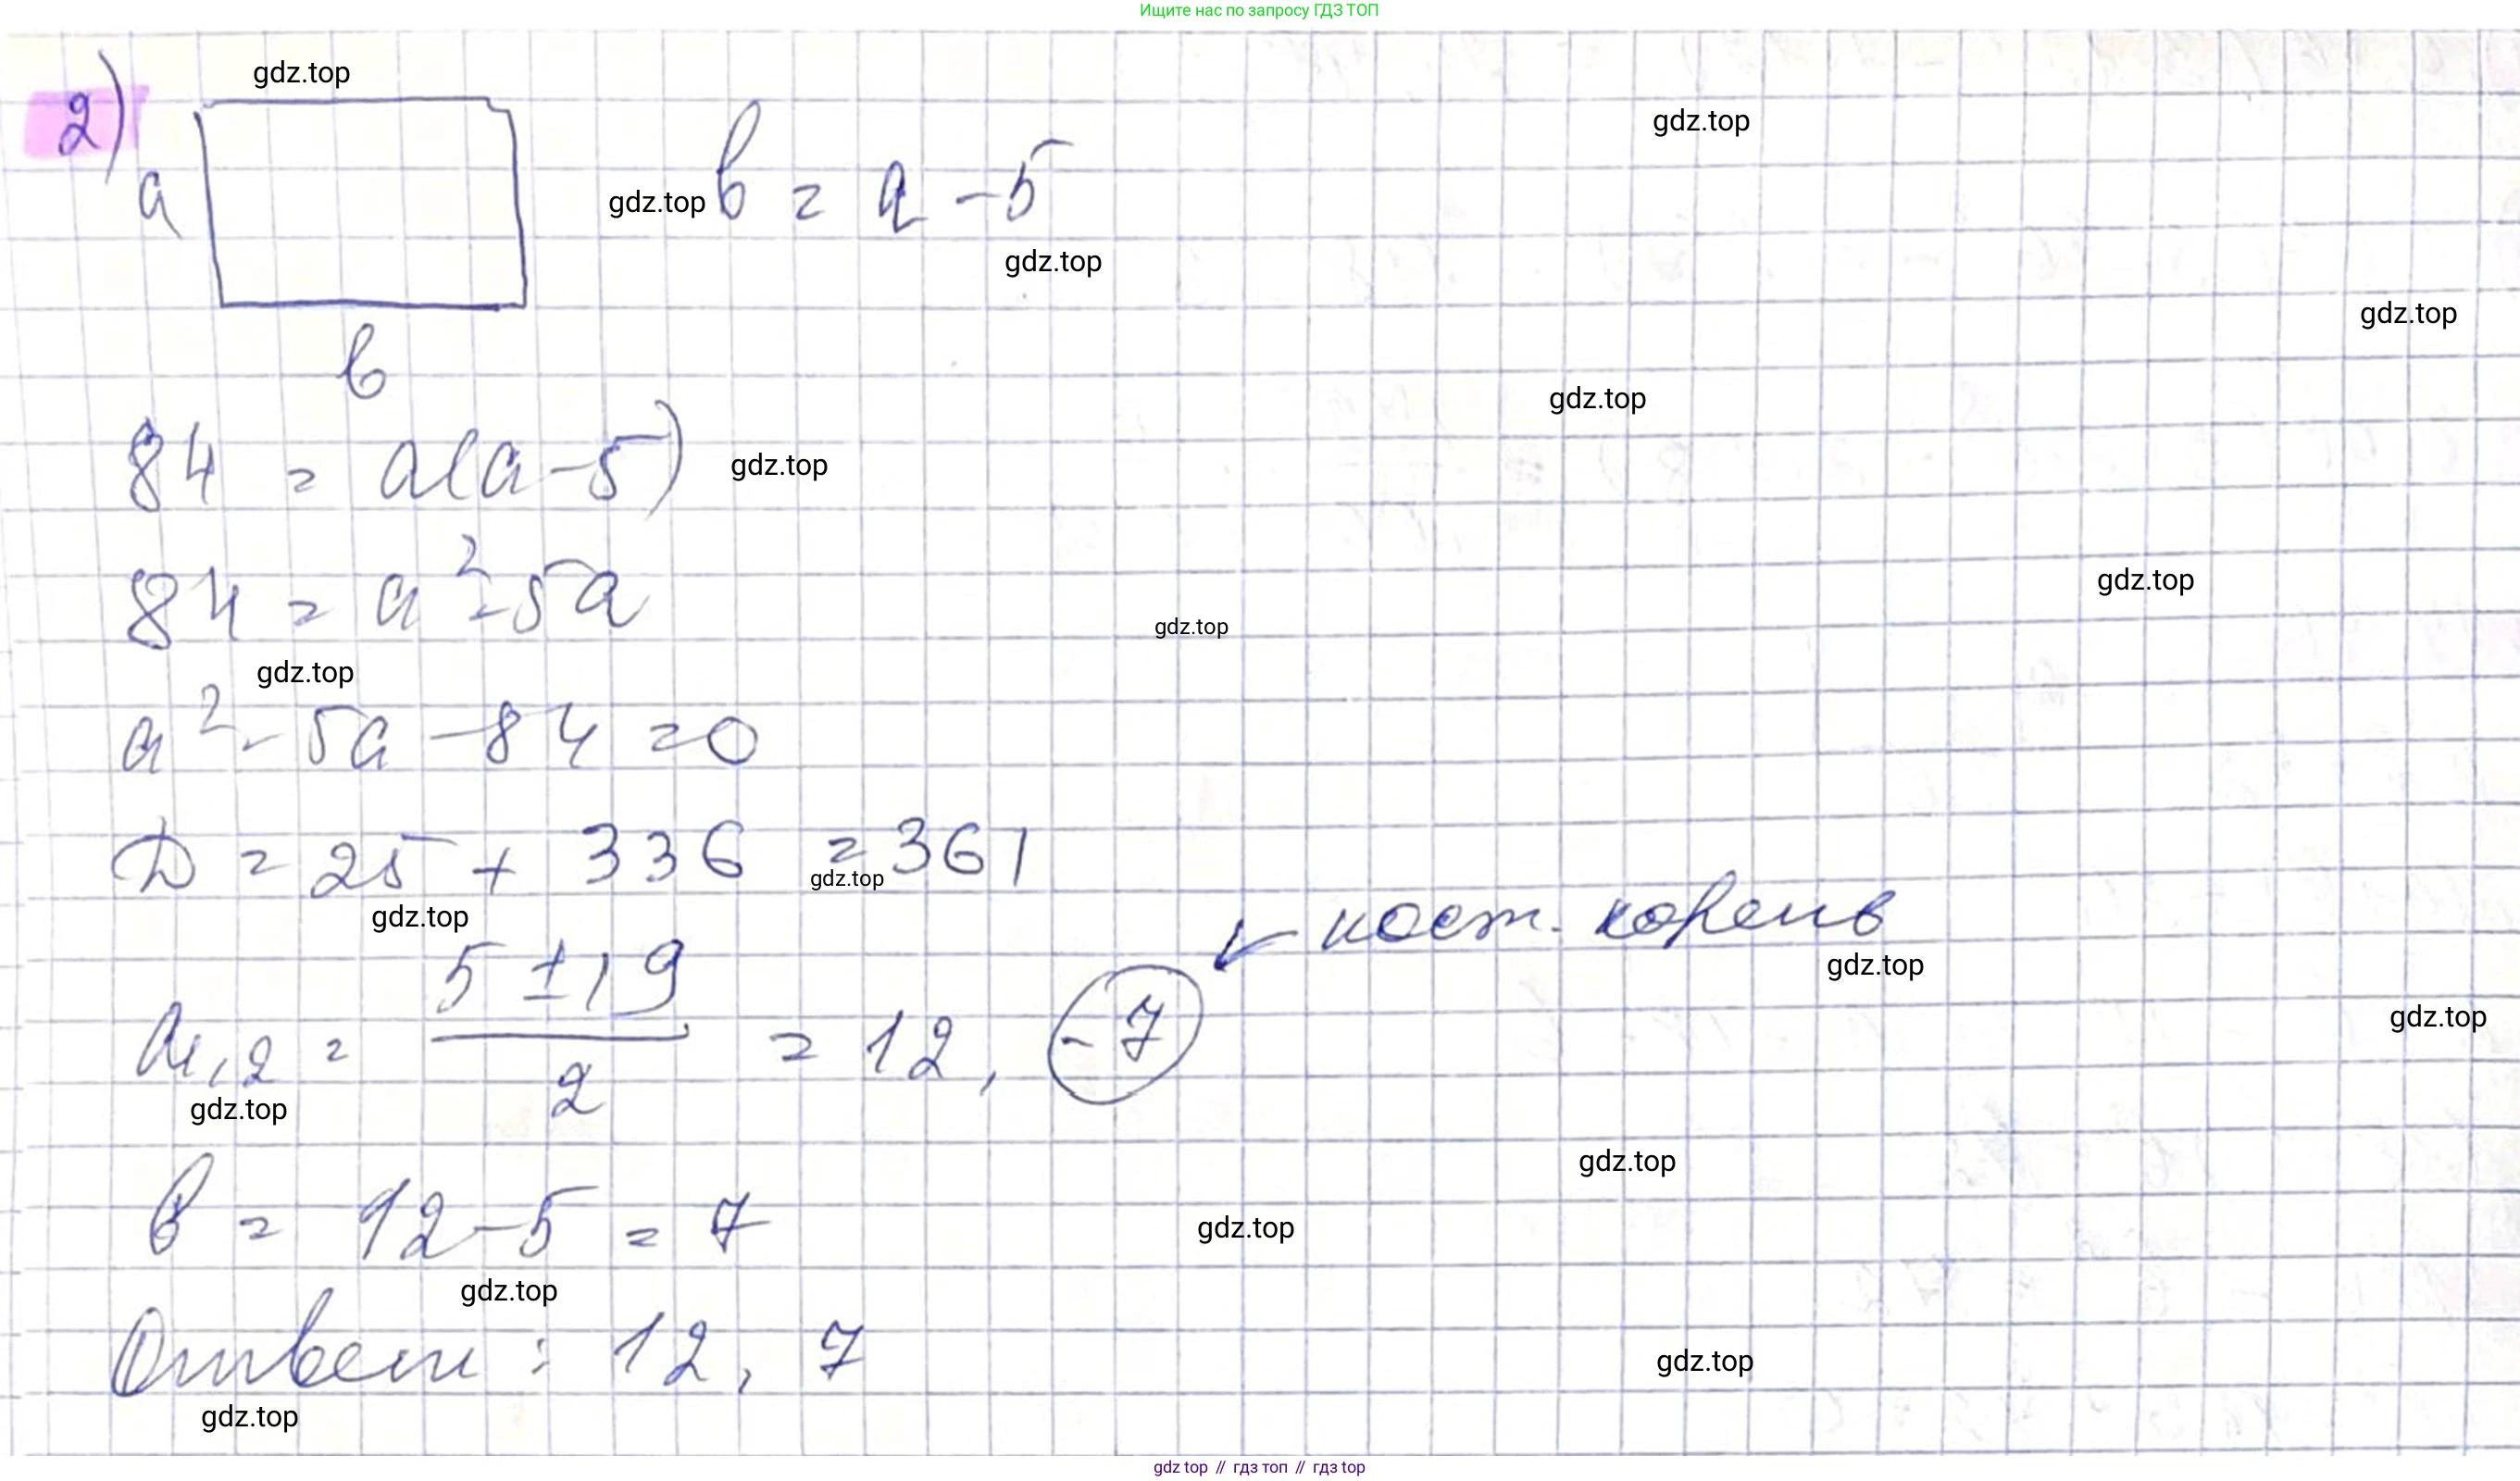 Ищите нас по запросу ГДЗ ТОП
gdz.top
2)
a
gdz.top b = a - 5
gdz.top
gdz.top
gdz.top
b
gdz.top
84 = a(a-5)
gdz.top
84 = a²-5a
gdz.top
gdz.top
gdz.top
a² - 5a - 84 = 0
D = 25 + 336 = 361
gdz.top
gdz.top
← пост. корень
gdz.top
a₁,₂ = (5 ± 19)/2 = 12, -7
gdz.top
gdz.top
gdz.top
b = 12-5 = 7
gdz.top
gdz.top
Ответ: 12, 7
gdz.top
gdz.top
gdz top // гдз топ // гдз top